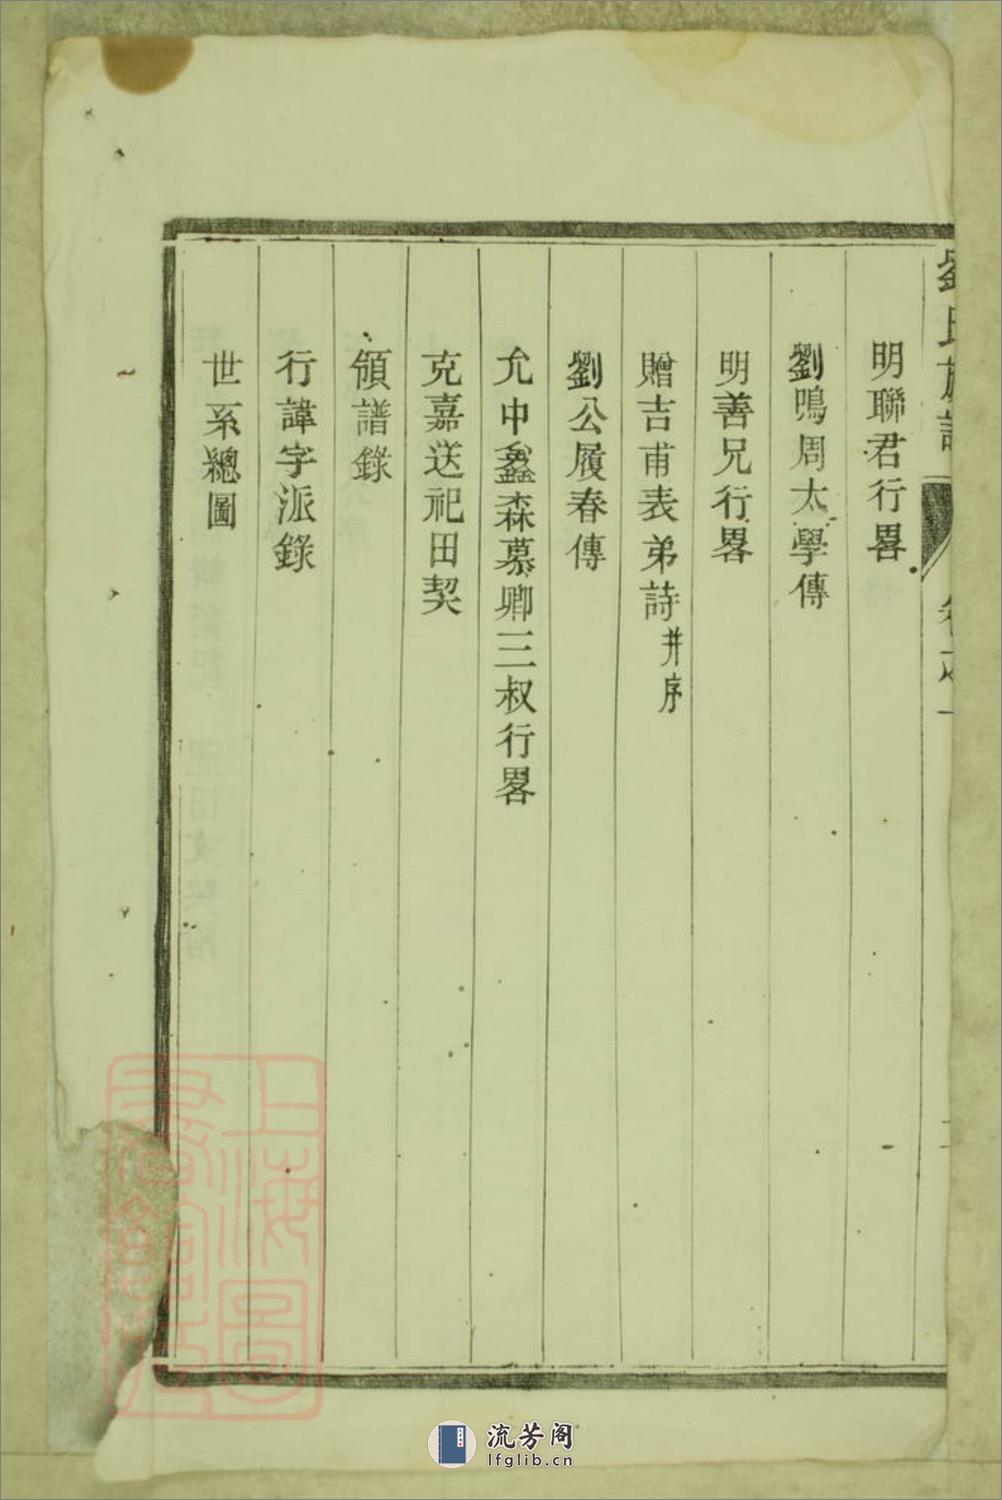 劉氏族譜 卷之一
明聯君行畧
劉鳴周太學傳
明善兄行畧
贈吉甫表弟詩并序
劉公履春傳
允中鑫森慕卿三叔行畧
克嘉送祀田契
領譜錄
行諱字派錄
世系總圖
上海圖
書館藏
流芳阁
lfglib.cn